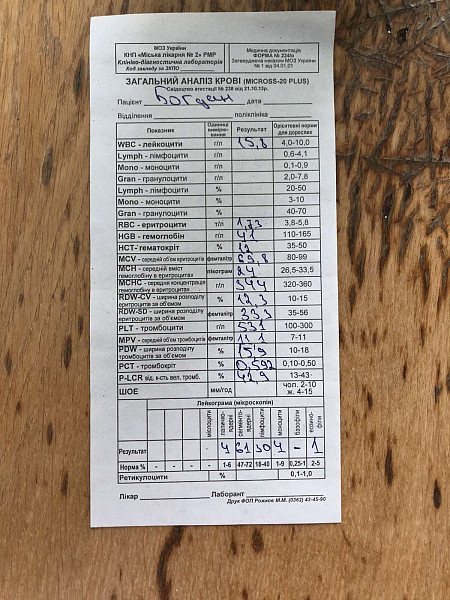 МОЗ України
КНП «Міська лікарня № 2» РМР
Клініко-діагностична лабораторія
Код закладу за ЗКПО
Медична документація
ФОРМА № 224/о
Затверджена наказом МОЗ України
№ 1 від 04.01.01
ЗАГАЛЬНИЙ АНАЛІЗ КРОВІ (MICROSS-20 PLUS)
Свідоцтво атестації № 238 від 21.10.13р.
Пацієнт Богдан дата
Відділення поліклініка
Показник Одиниці виміру-вання Результат Орієнтовні норми для дорослих
WBC - лейкоцити г/л 15,8 4,0-10,0
Lymph - лімфоцити г/л 0,6-4,1
Mono - моноцити г/л 0,1-0,9
Gran - гранулоцити г/л 2,0-7,8
Lymph - лімфоцити % 20-50
Mono - моноцити % 3-10
Gran - гранулоцити % 40-70
RBC - еритроцити г/л 1,73 3,8-5,8
HGB - гемоглобін г/л 41 110-165
HCT- гематокріт % 12 35-50
MCV - середній об'єм еритроцитів фемталітр 69,8 80-99
MCH - середній вміст гемоглобіну в еритроцитах пікограм 24 26,5-33,5
MCHC - середня концентрація гемоглобіну в еритроцитах г/л 344 320-360
RDW-CV - ширина розподілу еритроцитів за об'ємом % 12,3 10-15
RDW-SD - ширина розподілу еритроцитів за об'ємом фемталітр 33,3 35-56
PLT - тромбоцити г/л 531 100-300
MPV - середній об'єм тромбоцитів фемталітр 11,1 7-11
PDW - ширина розподілу тромбоцитів за об'ємом % 15,9 10-18
PCT - тромбокріт % 0,592 0,10-0,50
P-LCR від. к-сть вел. тромб. % 42,9 13-43
ШОЕ мм/год чол. 2-10 ж. 4-15
Лейкограма (мікроскопія)
мієлоцити палично-ядерні сегменто-ядерні лімфоцити моноцити базофіли еозино-філи
Результат 4 61 30 4 - 1
Норма % - - - - 1-6 47-72 18-40 1-9 0,25-1 2-5
Ретикулоцити % 0,1-1,0
Лікар Лаборант
Друк ФОП Рожков М.М. (0362) 43-45-90